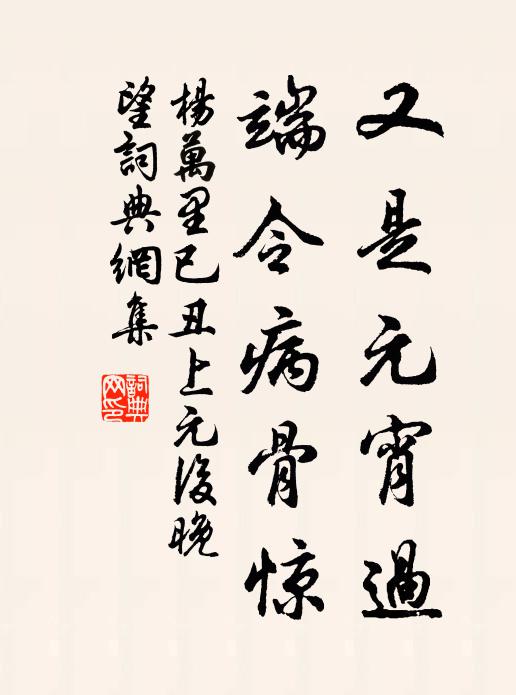 又是元宵過
端令病骨惊
楊萬里已丑上元後晚
望詞典網集
詞典
网印